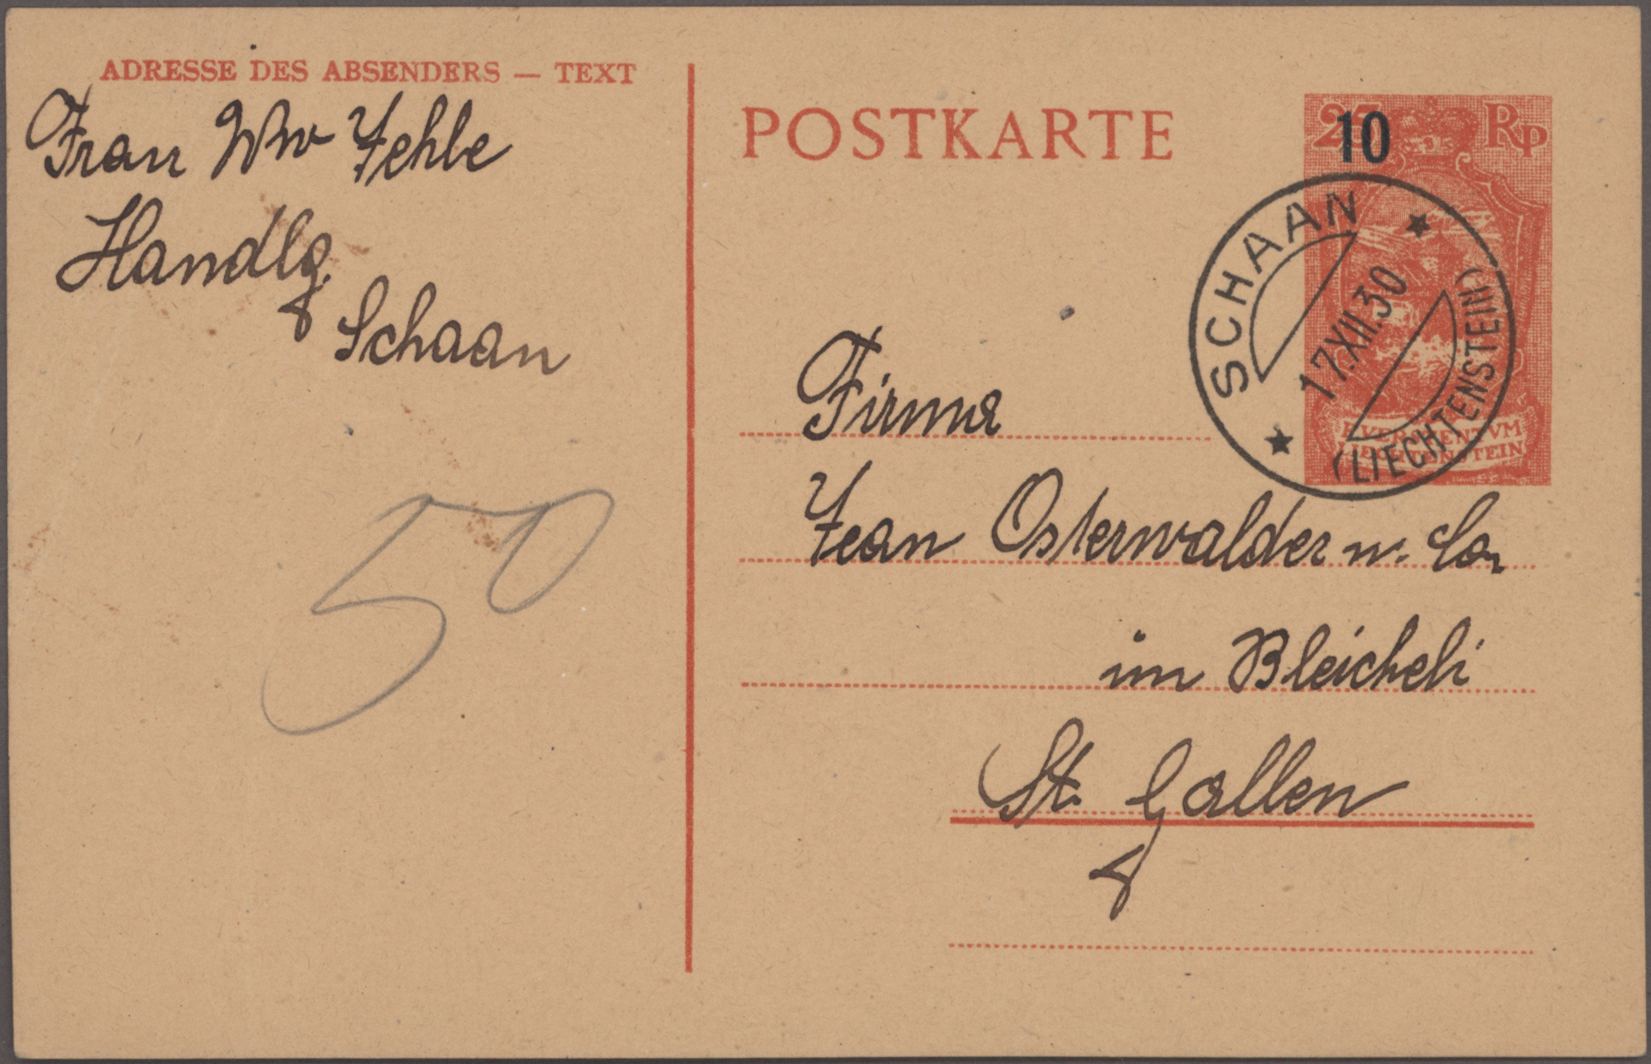 ADRESSE DES ABSENDERS — TEXT
Frau Ww Jehle
Handlg.
Schaan
50
POSTKARTE
25 Rp
10
SCHAAN
17.XII.30
(LIECHTENSTEIN)
LIECHTENSTEIN
Firma
Jean Osterwalder u. Co,
im Bleicheli
St. Gallen